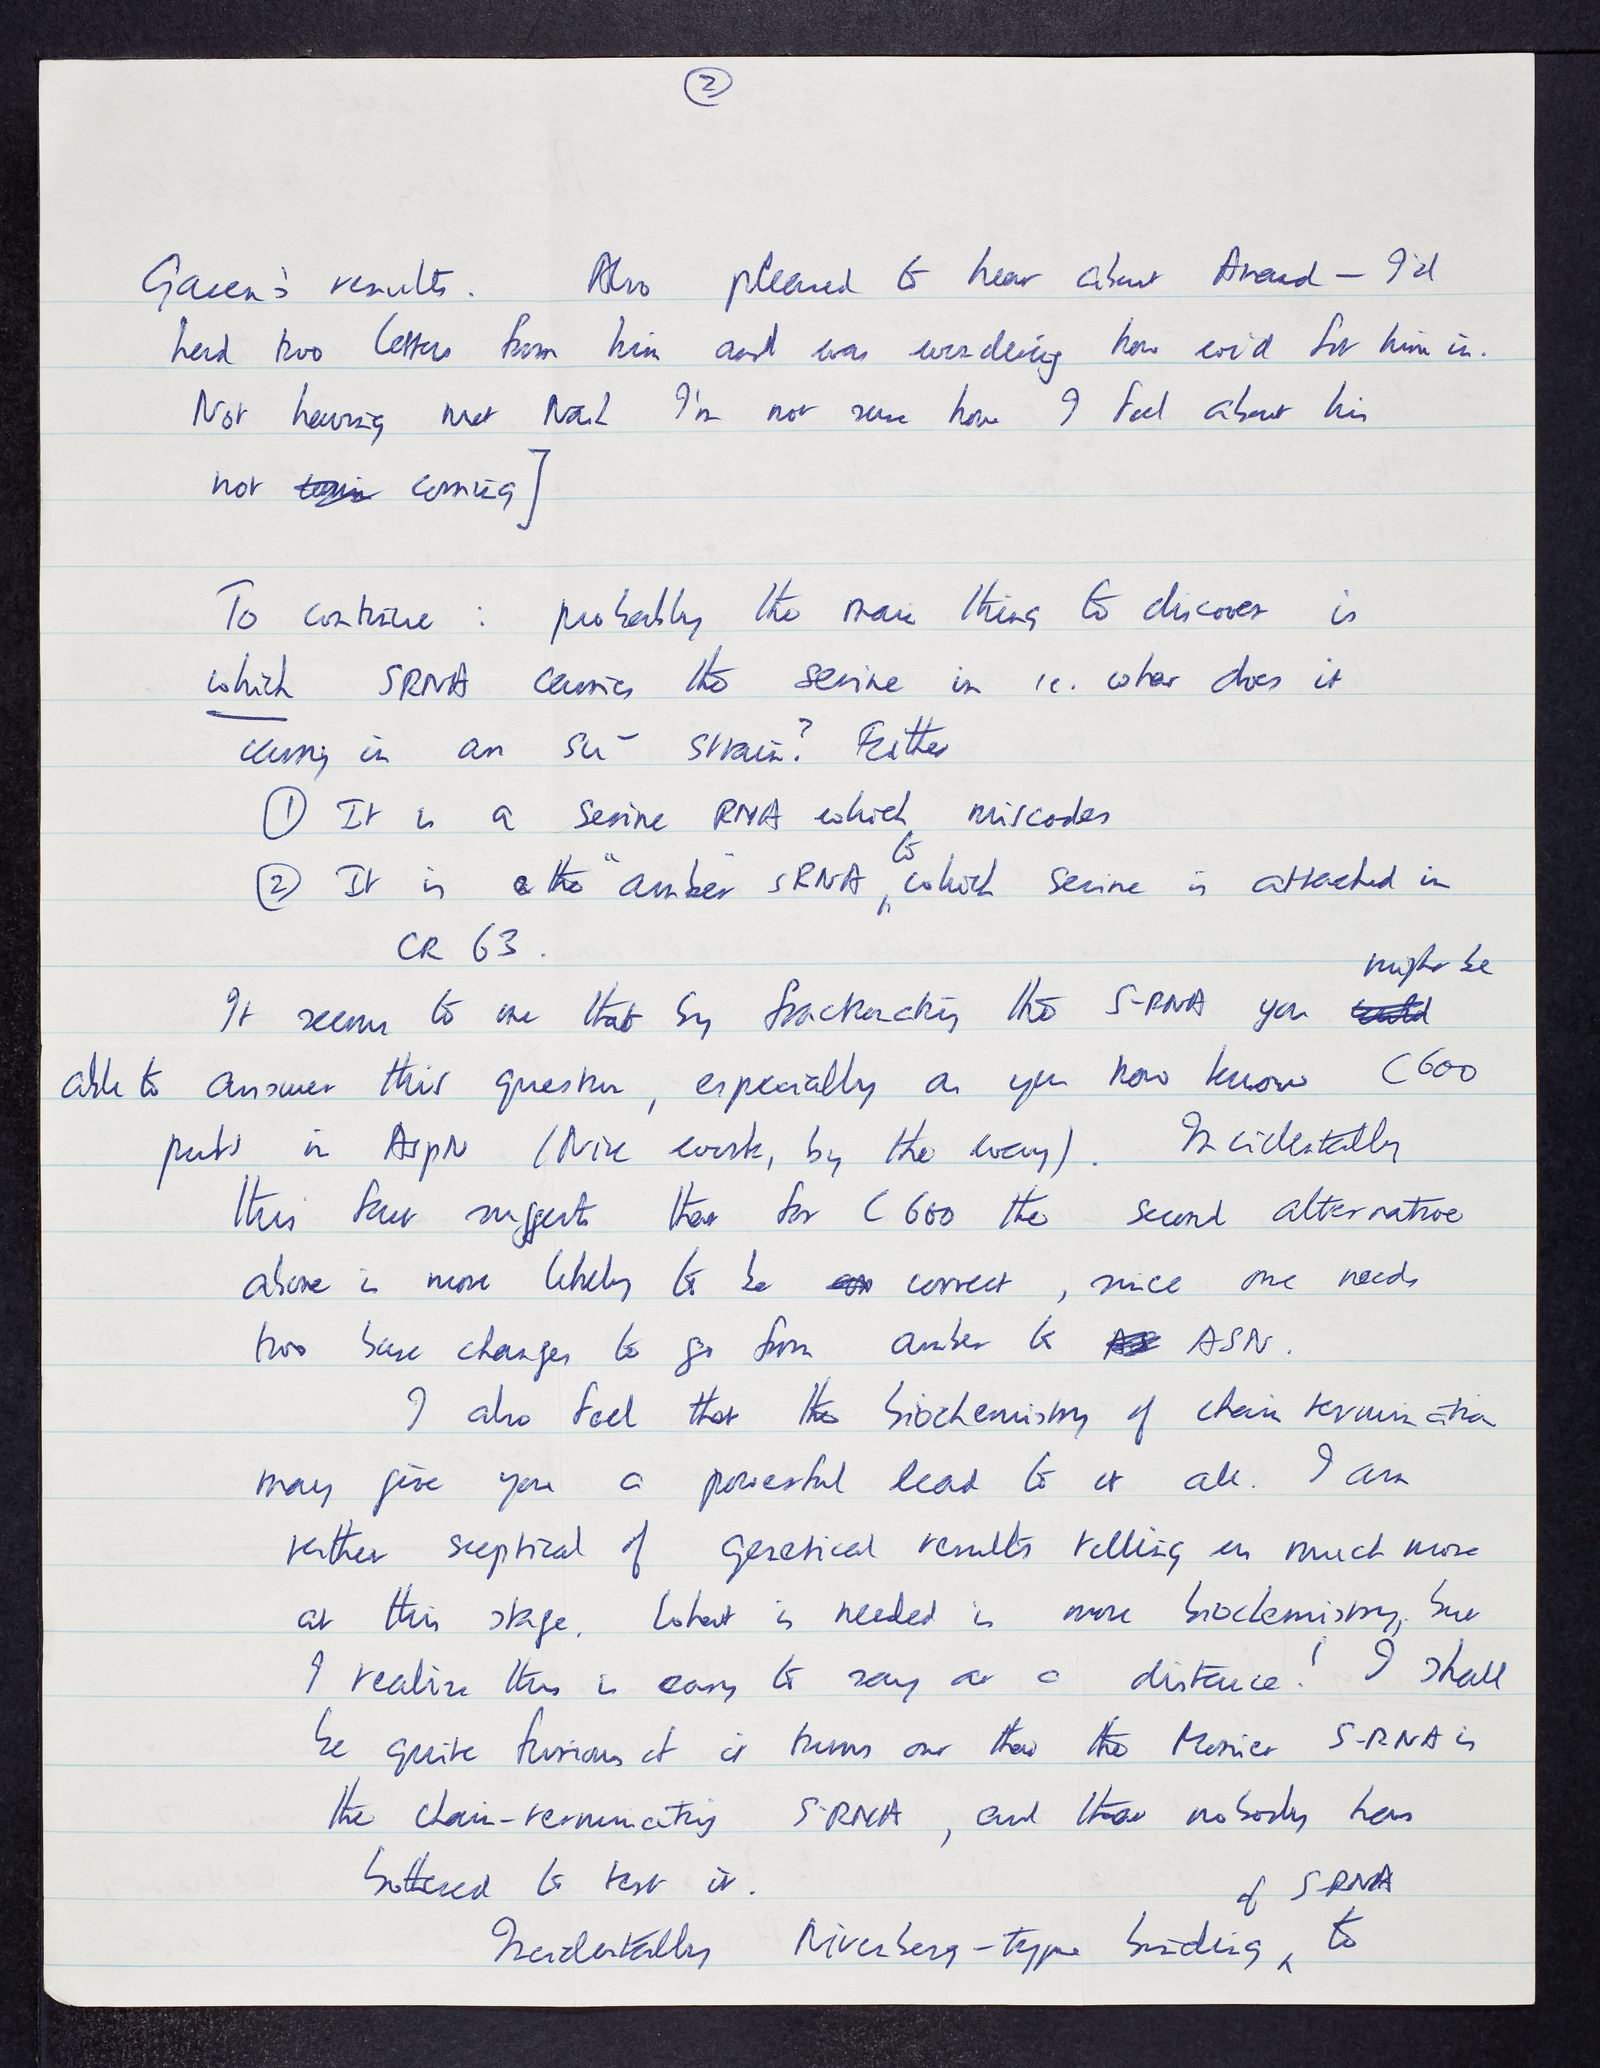 ②
Garen's results. Also pleased to hear about Anand — I'd
had two letters from him and was wondering how we'd fit him in.
Not having met Nash I'm not sure how I feel about his
not coming]
To continue : probably the main thing to discover is
which SRNA carries the serine in ie. what does it
carry in an su⁻ strain? Either
① It is a serine RNA which miscodes
② It is the "amber" sRNA, to which serine is attached in
CR 63.
It seems to me that by fractionating the S-RNA you might be
able to answer this question, especially as you now know C600
puts in AspN (Nice work, by the way). Incidentally
this fact suggests that for C600 the second alternative
above is more likely to be correct, since one needs
two base changes to go from amber to ASN.
I also feel that the biochemistry of chain termination
may give you a powerful lead to it all. I am
rather sceptical of genetical results telling us much more
at this stage. What is needed is more biochemistry, but
I realize this is easy to say at a distance! I shall
be quite furious if it turns out that the Monier S-RNA is
the chain-terminating S-RNA, and that nobody has
bothered to test it.
Incidentally Nirenberg-type binding of S-RNA to